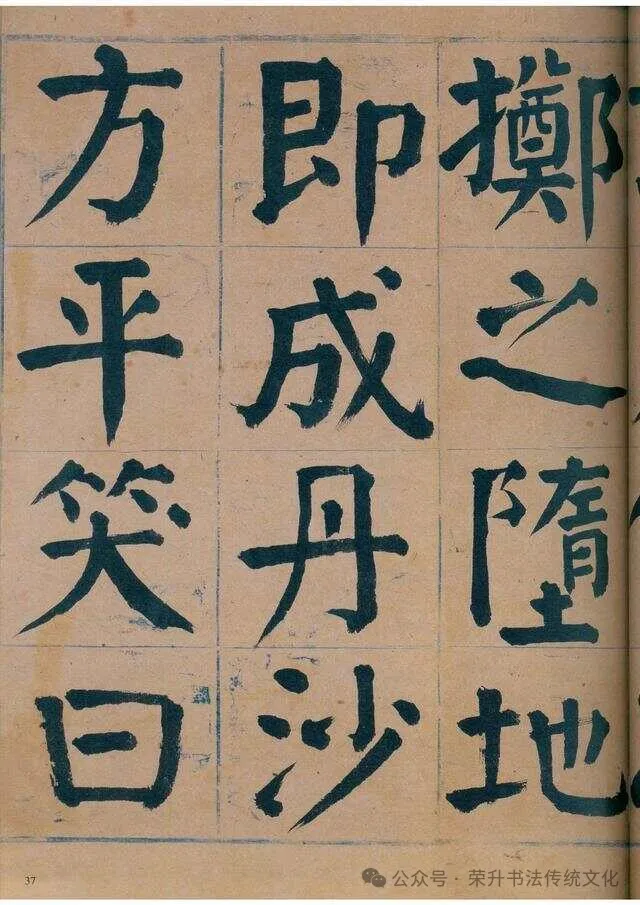 擲之墮地
即成丹沙
方平笑曰
37
公众号·荣升书法传统文化